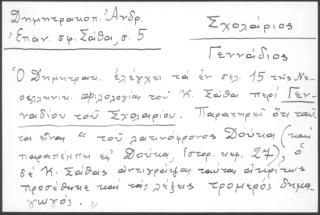 Δημητρακοπ. Ἀνδρ.
Ἐπαν. σφ. Σάθα, σ. 5
Σχολάριος
Γεννάδιος
Ὁ Δημητρακ. ἐλέγχει τὰ ἐν σελ. 15 τῆς Νε-
οελληνικ. φιλολογία τοῦ Κ. Σάθα περὶ Γεν-
ναδίου τοῦ Σχολαρίου. Παρατηρεῖ ὅτι ταῦ-
τα εἶναι "τοῦ λατινόφρονος Δούκα (καὶ
παραπέμπει εἰς Δούκα, ἱστορ. κεφ. 27), ὁ
δὲ Κ. Σάθας ἀντιγράψας ταῦτα ἀκρίτως
προσέθηκε καὶ τὰς λέξεις τρομερὸς δημα-
γωγός."